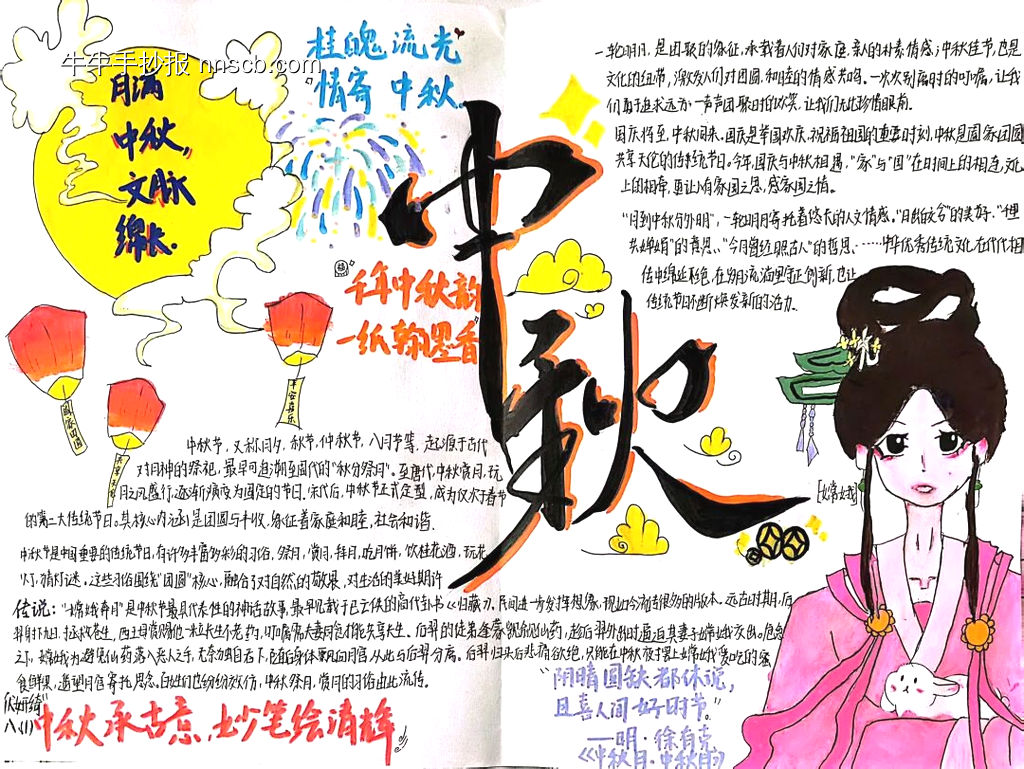 牛牛手抄报 nnscb.com
月满
中秋,
文脉
绵长.
桂魄流光
情寄中秋。
千年中秋韵
一纸翰墨香
中秋
一轮明月,是团聚的象征,承载着人们对家庭、亲人的朴素情感;中秋佳节,也是
文化的纽带,激发人们对团圆、和睦的情感共鸣。一次次别离时的叮嘱,让我
们勇于追求远方;一声声团聚时的欢笑,让我们无比珍惜眼前。
国庆将至,中秋同来。国庆是举国欢庆、祝福祖国的重要时刻,中秋是阖家团圆
共享天伦的传统节日。今年,国庆与中秋相遇,"家"与"国"在时间上的相连,文化
上的相牵,更让人有家国之思,感家国之情。
"月到中秋分外明",一轮明月寄托着悠长的人文情感。
共婵娟"的喜思、"今月曾经照古人"的哲思、……中华优秀传统文化在代代相
传中绵延
传统节日不断焕发新的活力。
阖家团圆
平安喜乐
中秋节,又称月夕、秋节、仲秋节、八月节等,起源于古代
对月神的祭祀,最早可追溯至周代的"秋分祭月"。至唐代,中秋赏月、玩
月之风盛行,逐渐演变为固定的节日。宋代后,中秋节正式定型,成为仅次于春节
的第二大传统节日。其核心内涵是团圆与丰收,象征着家庭和睦、社会和谐.
中秋节是中国重要的传统节日,有许多丰富多彩的习俗,祭月,赏月,拜月,吃月饼,饮桂花酒,玩花
灯,猜灯谜,这些习俗围绕"团圆"核心,融合了对自然的敬畏,对生活的美好期许
传说:"嫦娥奔月"是中秋节最具代表性的神话故事,最早见载于已亡佚的商代卦书《归藏》,民间进一步发挥想象,现如今流传很多的版本。远古时期,后
羿射下九日,拯救苍生,西王母赏赐他一粒长生不老药,叮嘱需夫妻同食才能共享长生。后羿的徒弟逢蒙觊觎仙药,趁后羿外出时逼迫其妻子嫦娥交出。危急
之下,嫦娥为避免仙药落入恶人之手,无奈独自吞下,随后身体飘向月宫,从此与后羿分离。后羿归来后悲痛欲绝,只能在中秋夜摆上嫦娥爱吃的蜜
食鲜果,遥望月宫寄托思念。百姓们也纷纷效仿,中秋祭月、赏月的习俗由此流传。
[嫦娥]
八(1)
中秋承古意,妙笔绘清辉
"阴晴圆缺都休说,
且喜人间好时节。"
——明·徐有贞
《中秋月·中秋月》